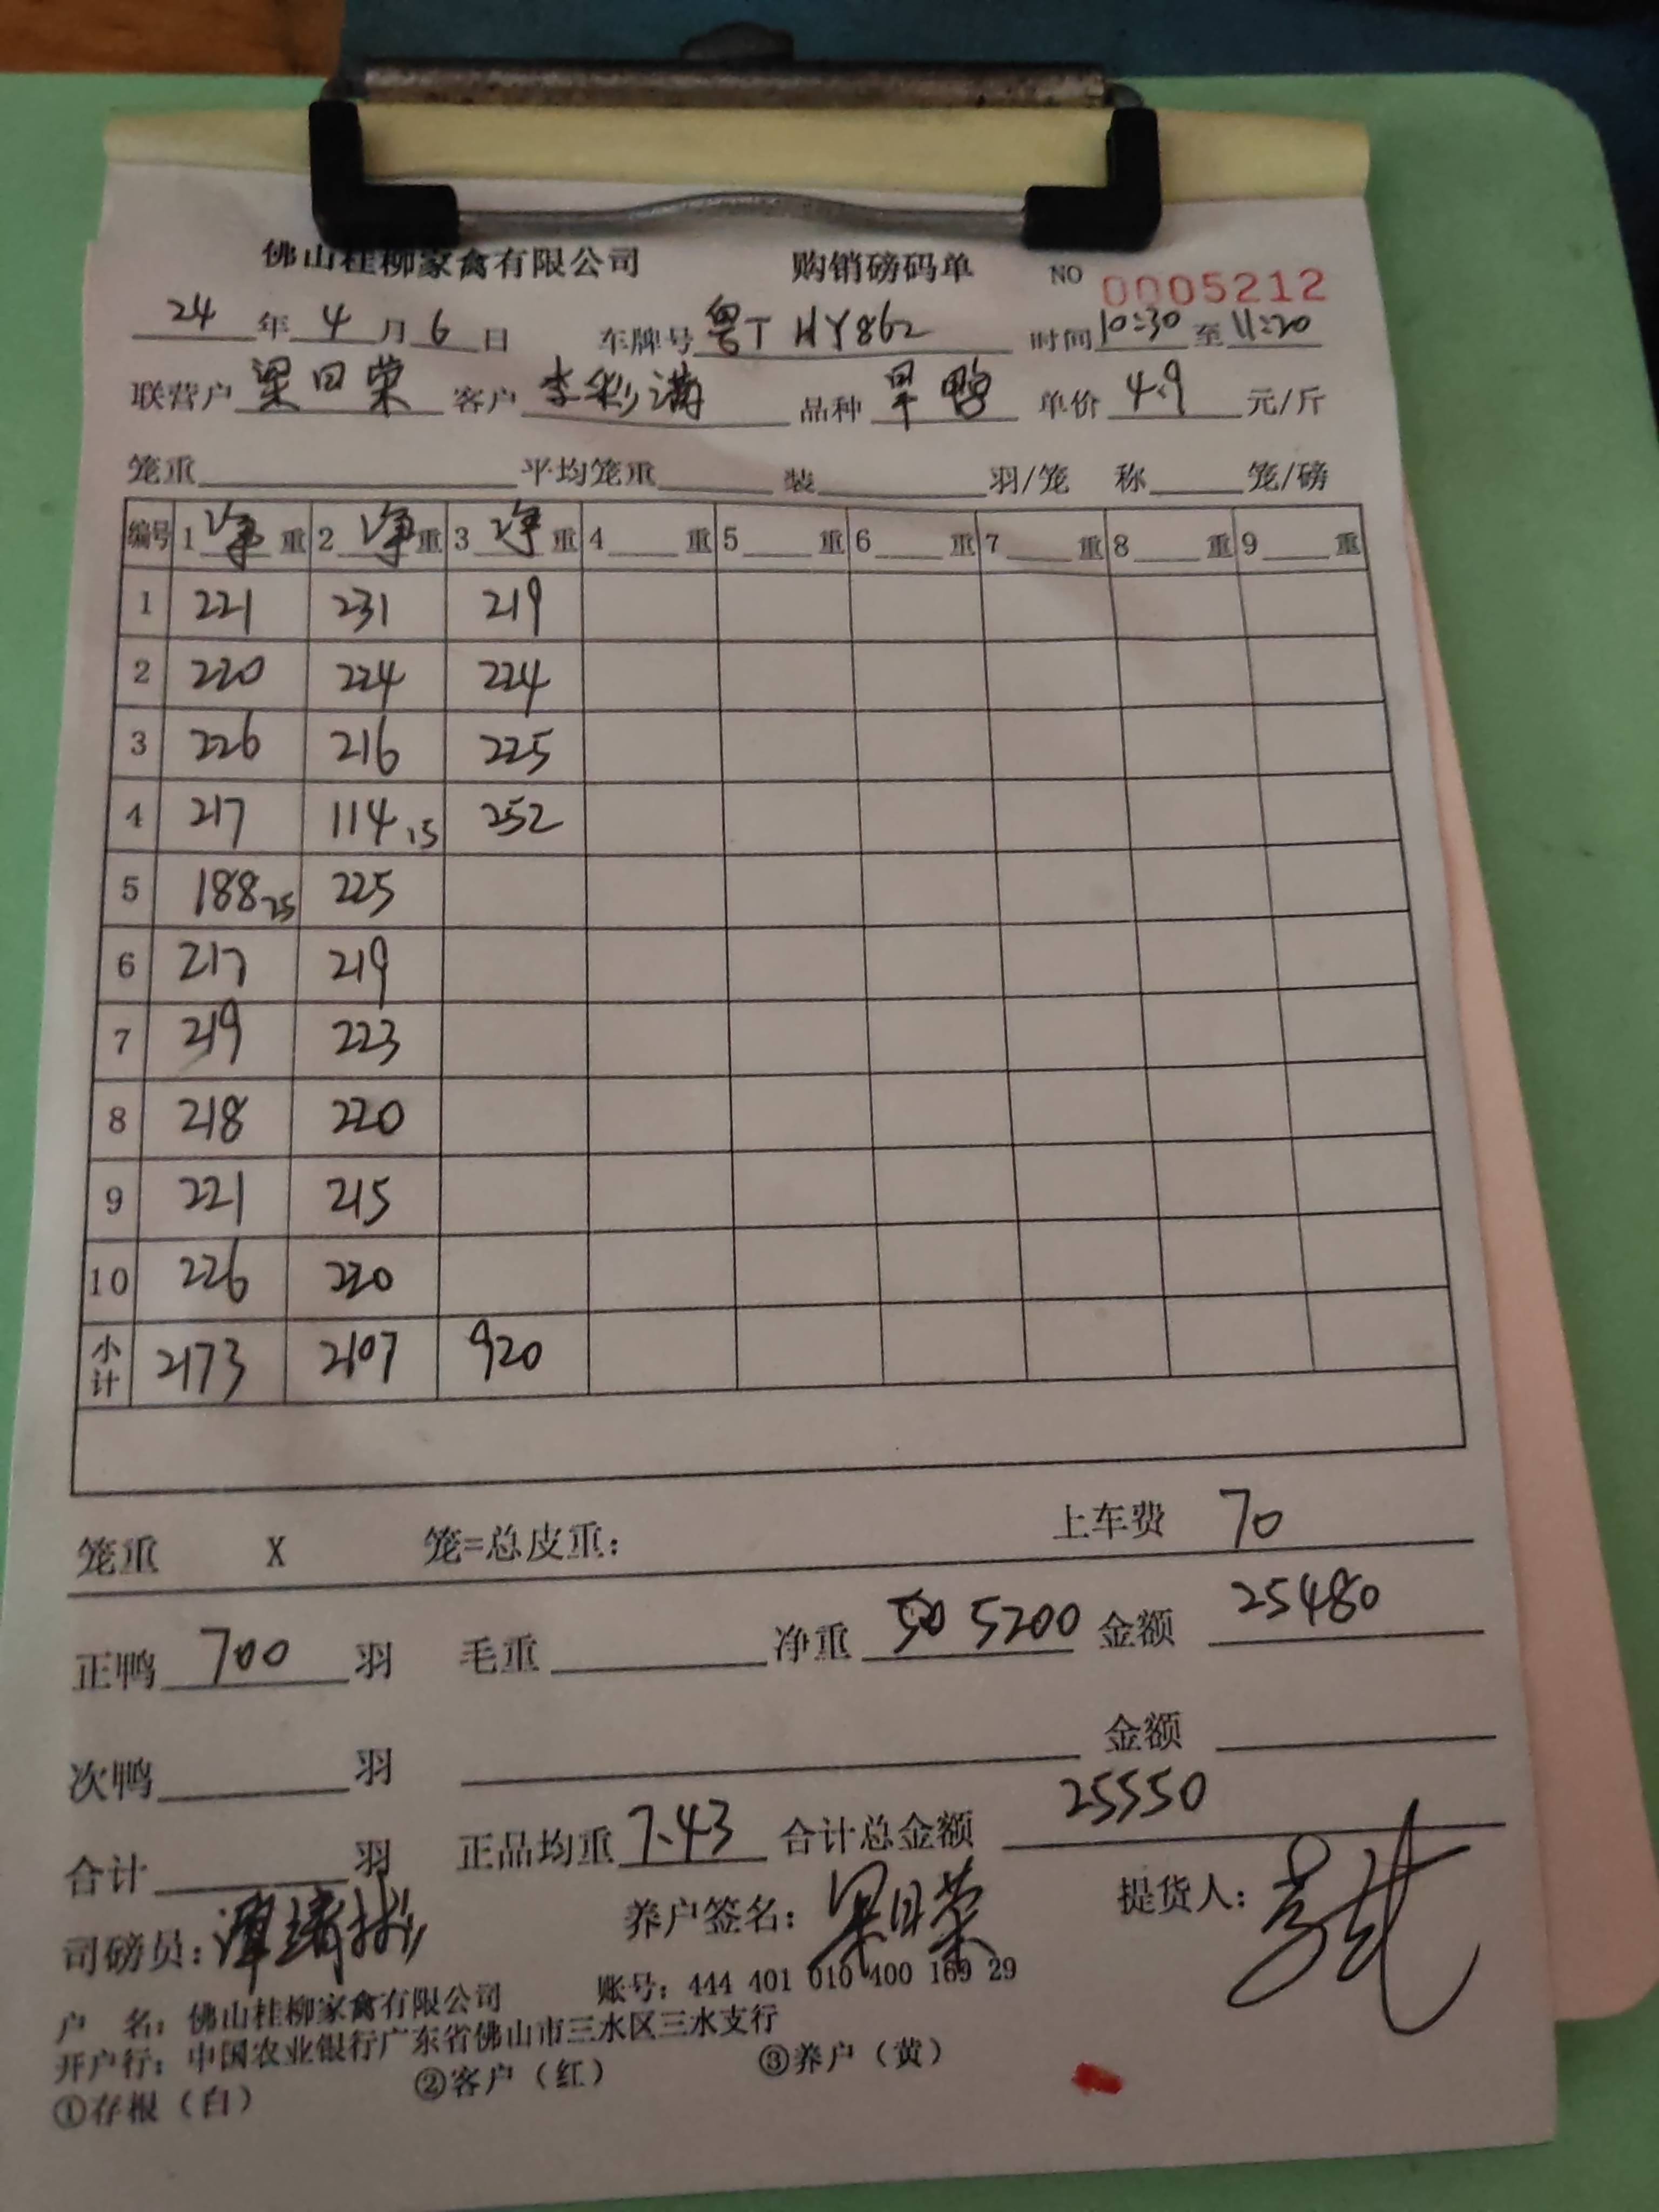 佛山桂柳家禽有限公司 购销磅码单 NO 0005212
24年4月6日 车牌号 粤T HY862 时间 10:30 至 11:20
联营户 梁日荣 客户 李彩满 品种 旱鸭 单价 4.9 元/斤
笼重 平均笼重 装 羽/笼 称 笼/磅
编号 1 净 重 2 净 重 3 净 重 4 重 5 重 6 重 7 重 8 重 9 重
1 221 231 219
2 220 224 224
3 226 216 225
4 217 114 15 252
5 188 25 225
6 217 219
7 219 223
8 218 220
9 221 215
10 226 220
小计 2173 2107 920
笼重 X 笼=总皮重: 上车费 70
正鸭 700 羽 毛重 净重 5200 金额 25480
次鸭 羽 金额
合计 羽 正品均重 7.43 合计总金额 25550
司磅员: 养户签名: 梁日荣 提货人:
户 名: 佛山桂柳家禽有限公司 账号: 444 401 010 400 169 29
开户行: 中国农业银行广东省佛山市三水区三水支行
①存根（白） ②客户（红） ③养户（黄）